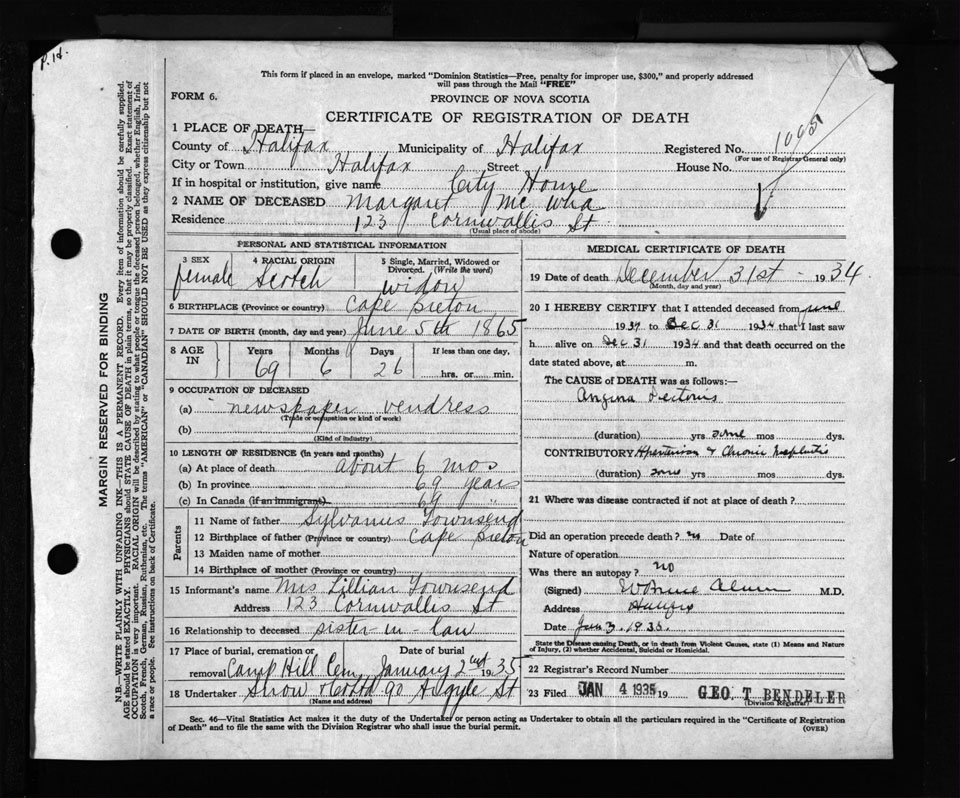 P.H.
This form if placed in an envelope, marked "Dominion Statistics—Free, penalty for improper use, $300," and properly addressed
will pass through the Mail "FREE"
FORM 6.
PROVINCE OF NOVA SCOTIA
CERTIFICATE OF REGISTRATION OF DEATH
1 PLACE OF DEATH—
County of Halifax Municipality of Halifax Registered No.
(For use of Registrar General only)
City or Town Halifax Street House No.
If in hospital or institution, give name City Home
2 NAME OF DECEASED Margaret Mc Wha
Residence 123 Cornwallis St
(Usual place of abode)
PERSONAL AND STATISTICAL INFORMATION
3 SEX female
4 RACIAL ORIGIN Scotch
5 Single, Married, Widowed or
Divorced. (Write the word)
widow
6 BIRTHPLACE (Province or country) Cape Breton
7 DATE OF BIRTH (month, day and year) June 5th 1865
8 AGE IN Years Months Days If less than one day,
69 6 26 hrs. or min.
9 OCCUPATION OF DECEASED
(a) newspaper vendress
(Trade or occupation or kind of work)
(b)
(Kind of industry)
10 LENGTH OF RESIDENCE (in years and months)
(a) At place of death about 6 mos
(b) In province 69 years
(c) In Canada (if an immigrant) 69 "
Parents
11 Name of father Sylvanus Townsend
12 Birthplace of father (Province or country) Cape Breton
13 Maiden name of mother
14 Birthplace of mother (Province or country)
15 Informant's name Mrs Lillian Townsend
Address 123 Cornwallis St
16 Relationship to deceased sister-in-law
17 Place of burial, cremation or removal Camp Hill Cem. Date of burial January 2nd 1935
18 Undertaker Snow & Co 90 Argyle St
(Name and address)
MEDICAL CERTIFICATE OF DEATH
19 Date of death December 31st - 1934.
(Month, day and year)
20 I HEREBY CERTIFY that I attended deceased from June
193 to Dec 31 1934 that I last saw
h alive on Dec 31 1934 and that death occurred on the
date stated above, at m.
The CAUSE of DEATH was as follows:—
Angina Pectoris
(duration) yrs some mos dys.
CONTRIBUTORY Hypertension & Chronic Nephritis
(duration) some yrs mos dys.
21 Where was disease contracted if not at place of death?
Did an operation precede death? no Date of
Nature of operation
Was there an autopsy? no
(Signed) M.D.
Address Halifax
Date Jan 3. 1935.
State the Disease causing Death, or in death from Violent Causes, state (1) Means and Nature
of Injury, (2) whether Accidental, Suicidal or Homicidal.
22 Registrar's Record Number
23 Filed JAN 4 1935 19 GEO. T BENDELER
(Division Registrar)
Sec. 46—Vital Statistics Act makes it the duty of the Undertaker or person acting as Undertaker to obtain all the particulars required in the "Certificate of Registration
of Death" and to file the same with the Division Registrar who shall issue the burial permit.
(OVER)
MARGIN RESERVED FOR BINDING
N.B.—WRITE PLAINLY WITH UNFADING INK—THIS IS A PERMANENT RECORD. Every item of information should be carefully supplied.
AGE should be stated EXACTLY. PHYSICIANS should STATE CAUSE OF DEATH in plain terms, so that it may be properly classified. Exact statement of
OCCUPATION is very important. RACIAL ORIGIN will be described by stating to what people or tongue the deceased person belonged, whether English, Irish,
Scotch, French, German, Russian, Ruthenian, etc. The terms "AMERICAN" or "CANADIAN" SHOULD NOT BE USED as they express citizenship but not
a race or people. See instructions on back of Certificate.